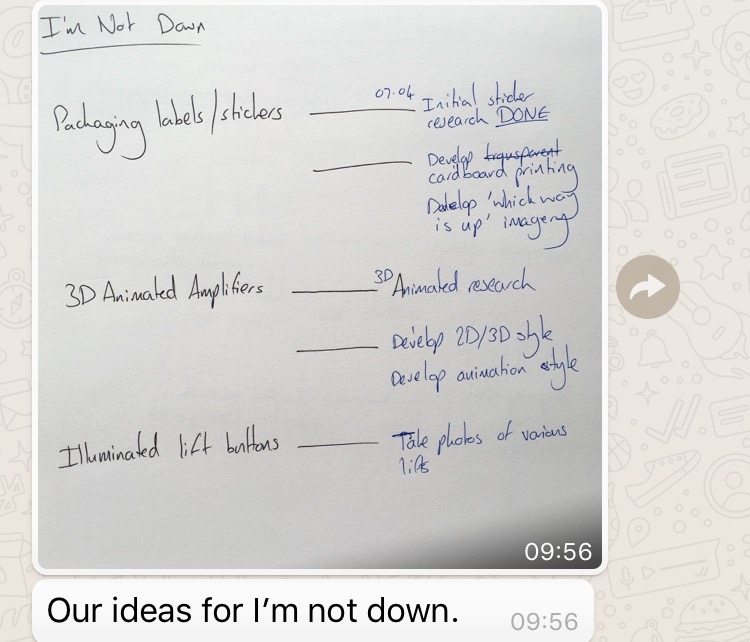 I'm Not Down
Packaging labels/stickers
07.04 Initial sticker
research DONE
Develop transparent
cardboard printing
Develop 'which way
is up' imagery
3D Animated Amplifiers
3D Animated research
Develop 2D/3D style
Develop animation style
Illuminated lift buttons
Take photos of various
lifts
09:56
Our ideas for I'm not down.
09:56